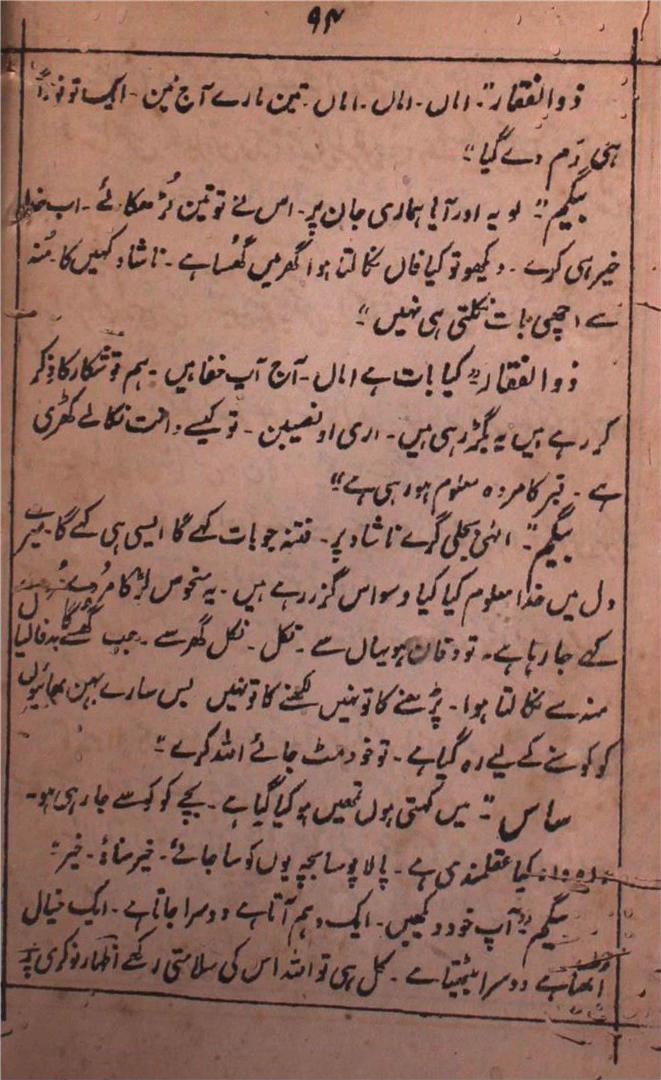 ۹۴
ذوالفقار" اماں۔ اماں۔ اماں۔ تین مارے آج تین۔ ایک تو فوراً
ہی دَم دے گیا"
بیگم" لو یہ اور آیا ہماری جان پر۔ اس نے تو تین لُڑھکائے۔ اب خدا
خیر ہی کرے۔ دیکھو تو کیا فال نکالتا ہوا گھر میں گھُسا ہے۔ ناشاد کہیں کا۔ مُنہ
سے اچھی بات نکلتی ہی نہیں"
ذوالفقار" کیا بات ہے اماں۔ آج آپ خفا ہیں۔ ہم تو شکار کا ذِکر
کر رہے ہیں یہ بگڑ رہی ہیں۔ اری او نصیبن۔ تو کیسے دانت نکالے کھڑی
ہے۔ قبر کا مردہ معلوم ہو رہی ہے"
بیگم" الٰہی بجلی گرے ناشاد پر۔ فتنہ جو بات کہے گا ایسی ہی کہے گا۔ میرے
دل میں خدا معلوم کیا کیا وسواس گزر رہے ہیں۔ یہ منحوس لڑکا مُردے
کہے جا رہا ہے۔ تو دفان ہو یہاں سے۔ نکل۔ نکل گھر سے۔ جب گھسے گا بدفالیا
منہ سے نکالتا ہوا۔ پڑھنے کا تو نہیں لکھنے کا تو نہیں بس سارے بہن بھائیوں
کو کوسنے کے لیے رہ گیا ہے۔ تو خود مٹ جائے اللہ کرے"
ساس" میں کہتی ہوں تمھیں ہو کیا گیا ہے۔ بچے کو کوسے جا رہی ہو۔
واہ وا۔ کیا عقلمندی ہے۔ پالا پوسا بچہ یوں کوسا جائے۔ خیر مناؤ۔ خیر"
بیگم" آپ خود دیکھیں۔ ایک وہم آتا ہے دوسرا جاتا ہے۔ ایک خیال
اُٹھتا ہے دوسرا بیٹھتا ہے۔ کل ہی تو اللہ اس کی سلامتی رکھے اظہار نوکری پہ